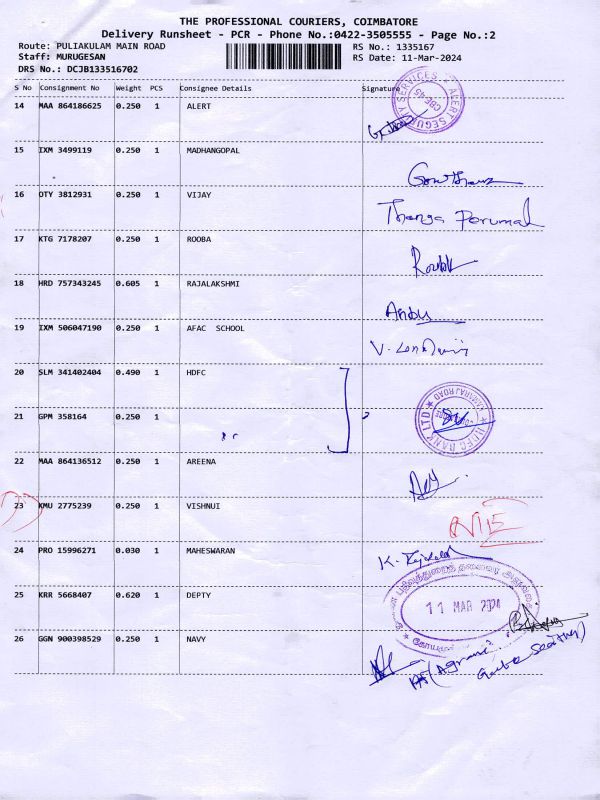 THE PROFESSIONAL COURIERS, COIMBATORE
Delivery Runsheet - PCR - Phone No.:0422-3505555 - Page No.:2
Route: PULIAKULAM MAIN ROAD RS No.: 1335167
Staff: MURUGESAN RS Date: 11-Mar-2024
DRS No.: DCJB133516702
S No Consignment No Weight PCS Consignee Details Signature
14 MAA 864186625 0.250 1 ALERT
15 IXM 3499119 0.250 1 MADHANGOPAL
16 OTY 3812931 0.250 1 VIJAY Thanga Perumal
17 KTG 7178207 0.250 1 ROOBA
18 HRD 757343245 0.605 1 RAJALAKSHMI Anbu
19 IXM 506047190 0.250 1 AFAC SCHOOL
20 SLM 341402404 0.490 1 HDFC
21 GPM 358164 0.250 1
HDFC BANK LTD KAMARAJ ROAD
22 MAA 864136512 0.250 1 AREENA
23 KMU 2775239 0.250 1 VISHNUI
24 PRO 15996271 0.030 1 MAHESWARAN
25 KRR 5668407 0.620 1 DEPTY
11 MAR 2024
26 GGN 900398529 0.250 1 NAVY